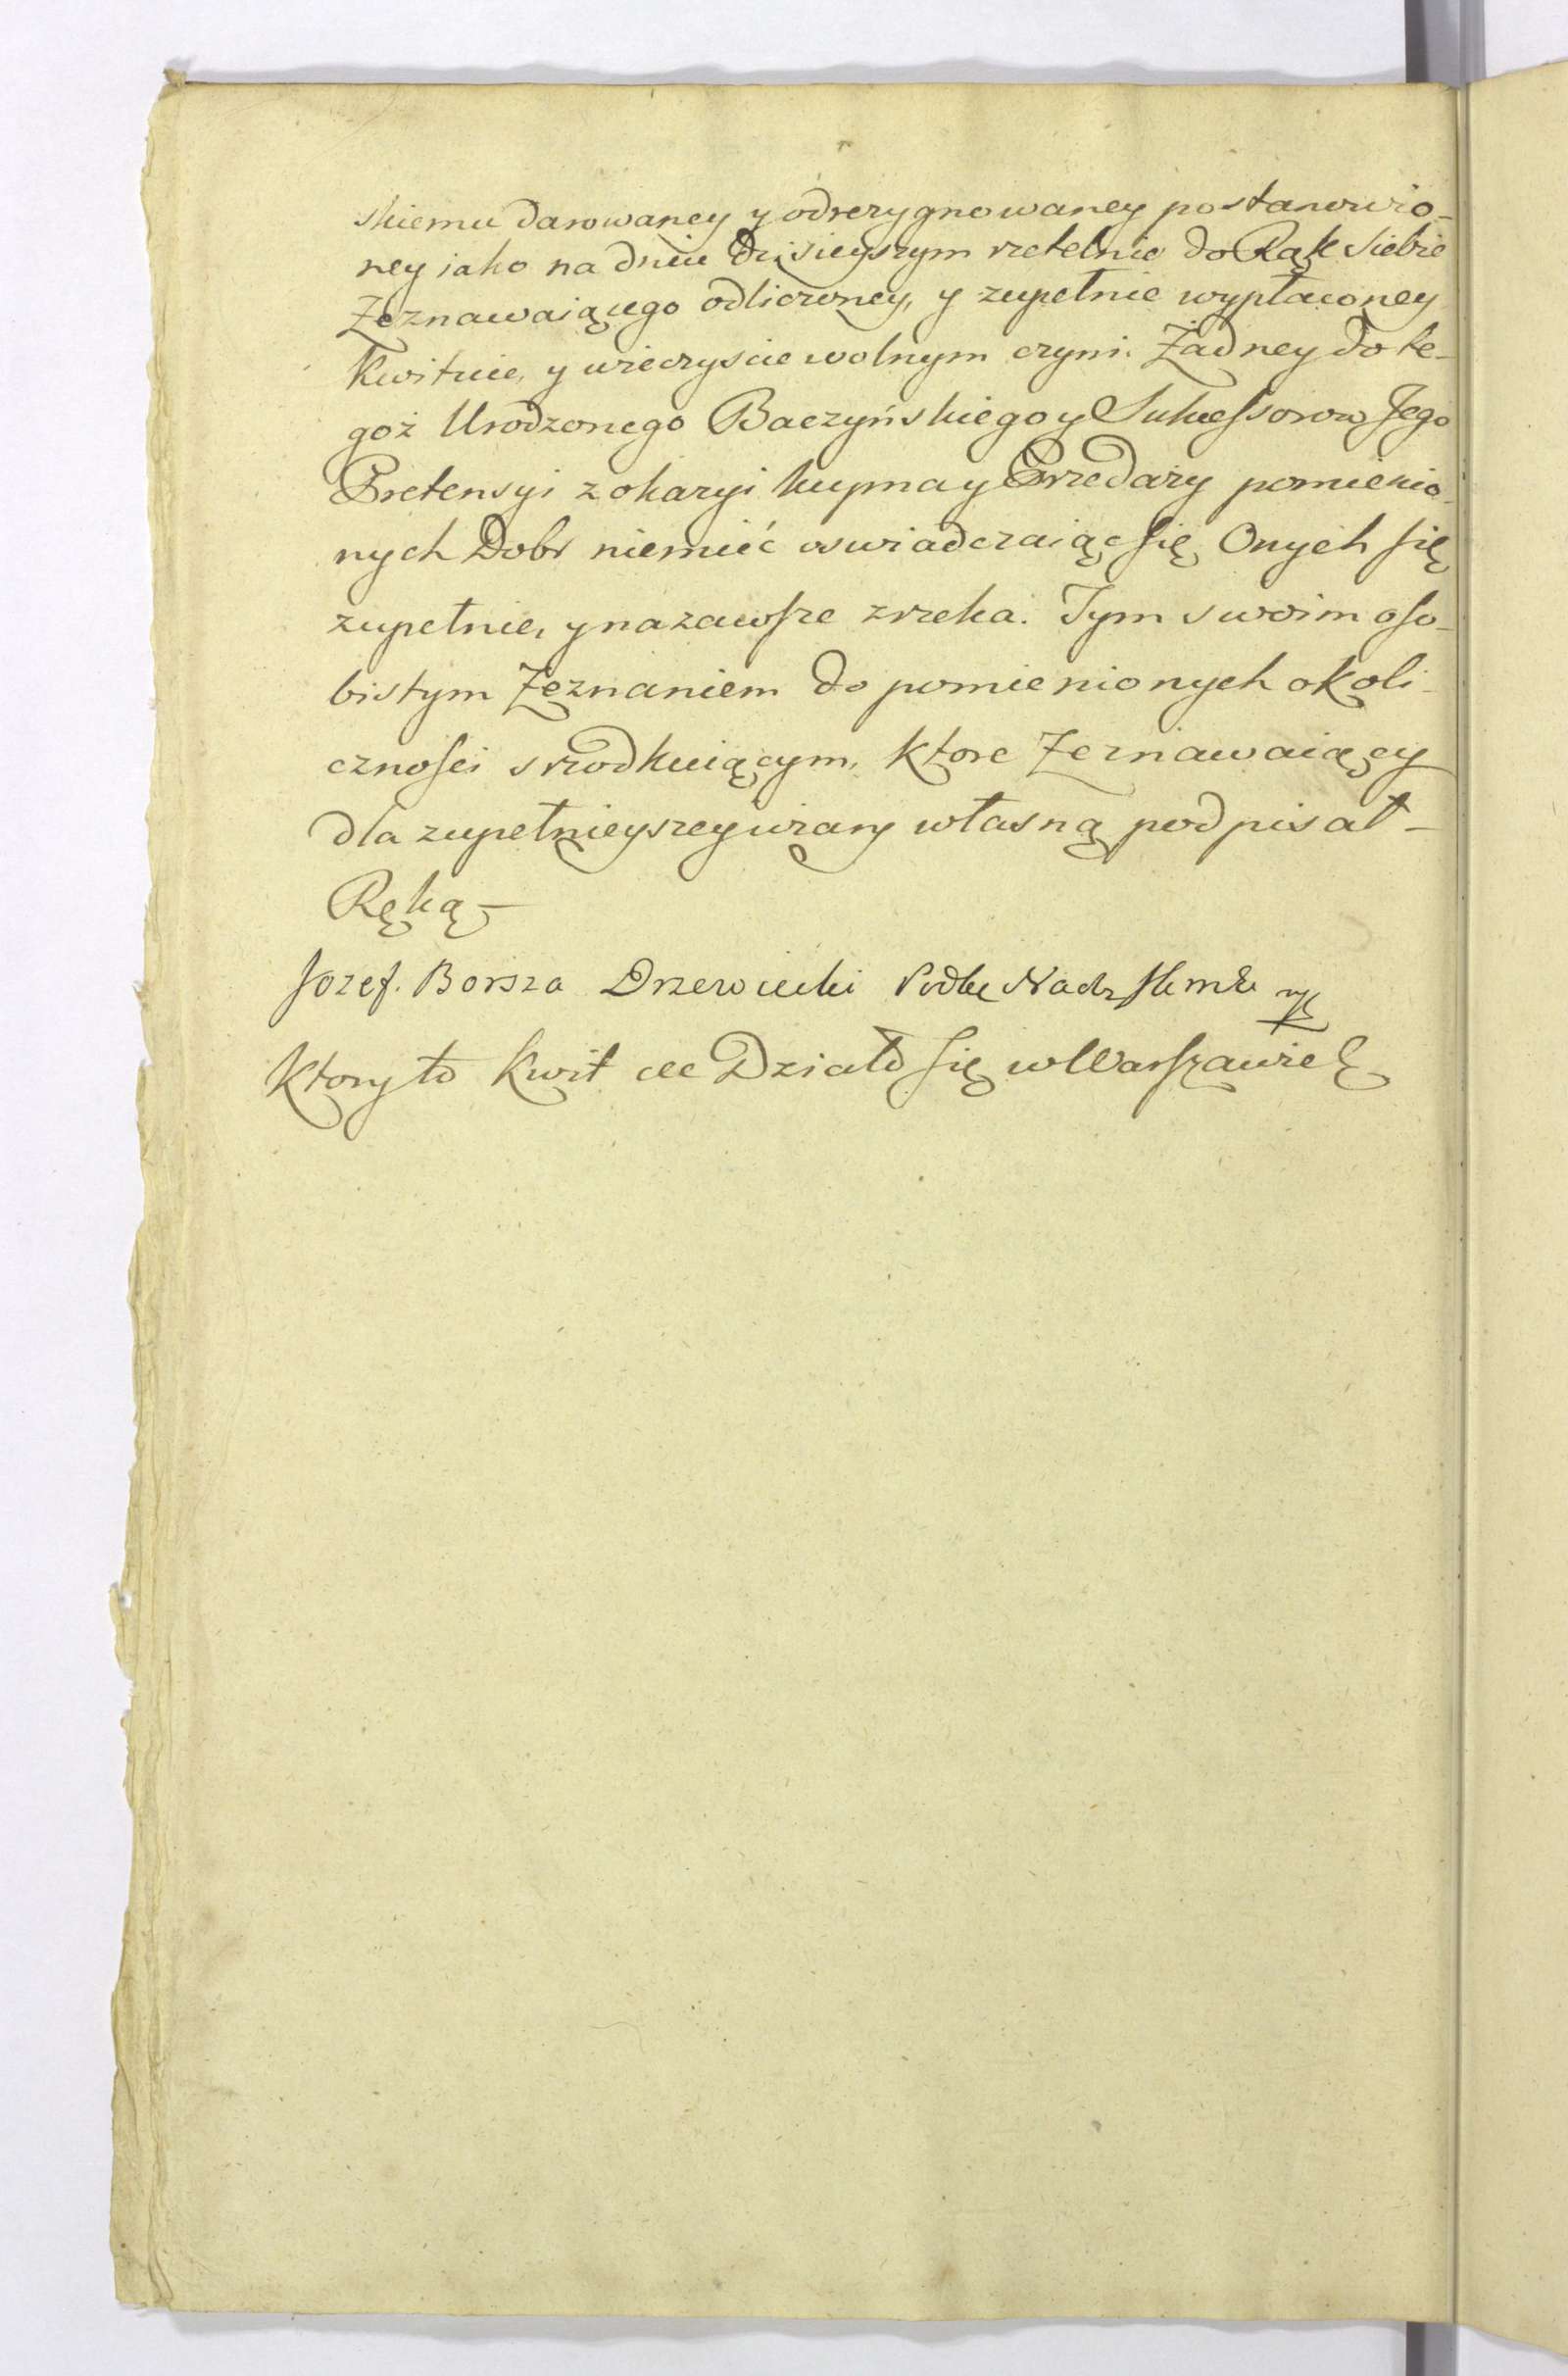 skiemu darowaney y odrezygnowaney postanowio-
ney iako na dniu dzisieyszym rzetelnie do Rąk siebie
Zeznawaiącego odliczoney, y zupełnie wypłaconey
Kwituie, y wieczyscie wolnym czyni. Żadney do te-
goż Urodzonego Baczyńskiego y Sukcessorow Jego
Pretensyi z okazyi kupna y Przedaży pomienio-
nych Dobr niemieć oswiadczaiąc się Onych się
zupełnie, y nazawsze zrzeka. Tym swoim oso-
bistym Zeznaniem do pomienionych okoli-
cznosci srzodkuiącym, ktore Zeznawaiący
dla zupełnieyszey wiary własną podpisał -
Ręką -
Jozef Borsza Drzewiecki Podky Nadr
Ktory to Kwit etc Działo się w Warszawie